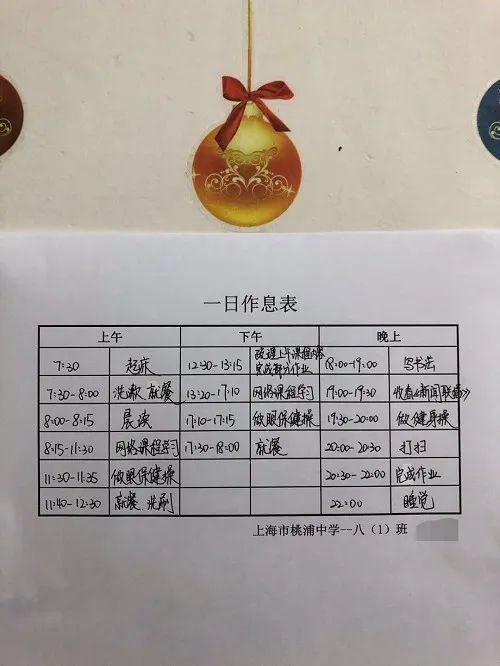 一日作息表
上午 下午 晚上
7:30 起床 12:30-13:15 整理上午课程内容 完成部分作业 18:00-19:00 写书法
7:30-8:00 洗漱 就餐 13:20-17:10 网络课程学习 19:00-19:30 收看《新闻联播》
8:00-8:15 晨读 17:10-17:15 做眼保健操 19:30-20:00 做健身操
8:15-11:30 网络课程学习 17:30-18:00 就餐 20:00-20:30 打扫
11:30-11:35 做眼保健操 20:30-22:00 完成作业
11:40-12:30 就餐、洗刷 22:00 睡觉
上海市桃浦中学--八（1）班